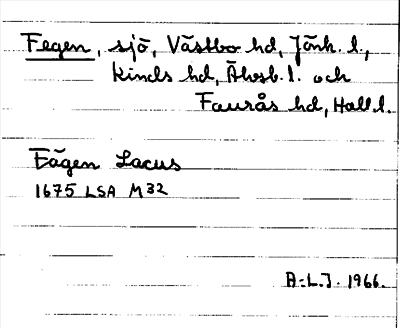 Fegen, sjö, Västbo hd, Jönk. l.,
Kinds hd, Älvsb. l. och
Faurås hd, Hall. l.
Fägen Lacus
1675 LSA M 32
A-L.J. 1966.